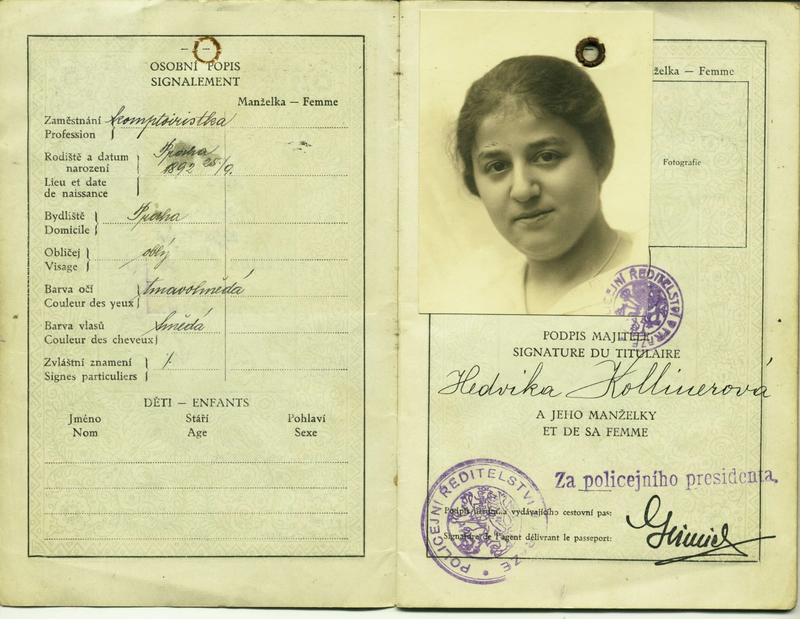 OSOBNÍ POPIS
SIGNALEMENT
Manželka — Femme
Zaměstnání
Profession
komptoiristka
Rodiště a datum
narození
Lieu et date
de naissance
Praha
1892 25/9.
Bydliště
Domicile
Praha
Obličej
Visage
oblý
Barva očí
Couleur des yeux
tmavohnědá
Barva vlasů
Couleur des cheveux
hnědá
Zvláštní znamení
Signes particuliers
DĚTI — ENFANTS
Jméno Stáří Pohlaví
Nom Age Sexe
želka — Femme
Fotografie
PODPIS MAJITELE
SIGNATURE DU TITULAIRE
Hedvika Kollinerová
A JEHO MANŽELKY
ET DE SA FEMME
Za policejního presidenta.
POLICEJNÍ ŘEDITELSTVÍ
Podpis a vydávajícího cestovní pas:
Signature de l'agent délivrant le passeport: